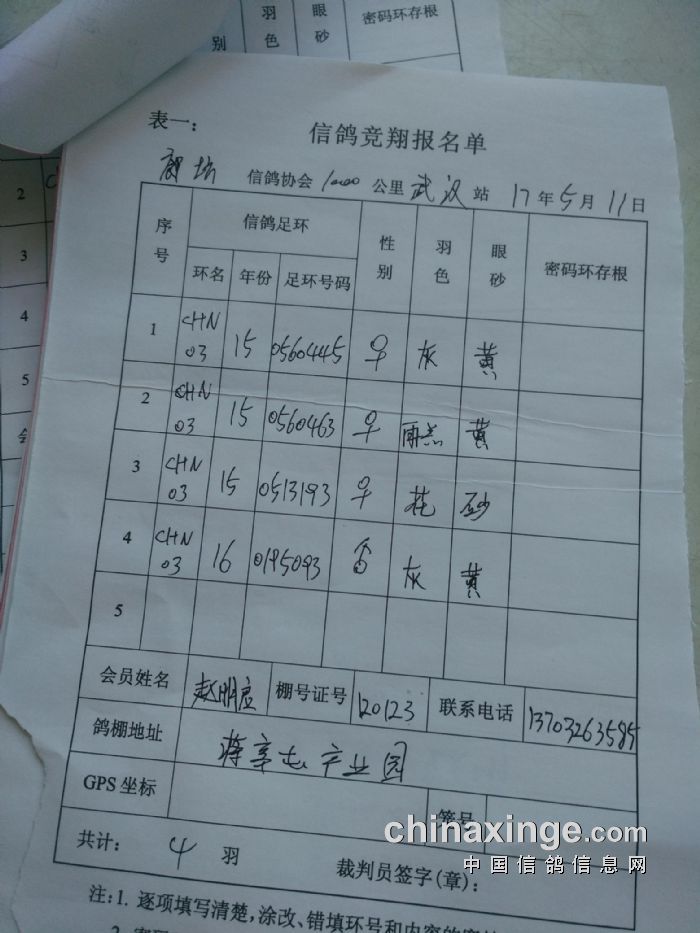 羽色
眼砂
密码环存根
别
2
3
4
5
表一：
信鸽竞翔报名单
廊坊 信鸽协会 1000 公里 武汉 站 17 年 5 月 11 日
序号 信鸽足环 性别 羽色 眼砂 密码环存根
环名 年份 足环号码
1 CHN 03 15 0560445 ♀ 灰 黄
2 CHN 03 15 0560463 ♀ 雨点 黄
3 CHN 03 15 0513193 ♀ 花 砂
4 CHN 03 16 0195093 灰 黄
5
会员姓名 赵明 棚号证号 120123 联系电话 13703263585
鸽棚地址 蒋辛屯产业园
GPS 坐标 笼号
共计： 4 羽 裁判员签字(章)：
注:1. 逐项填写清楚,涂改、错填环号和内容的
chinaxinge.com
中国信鸽信息网